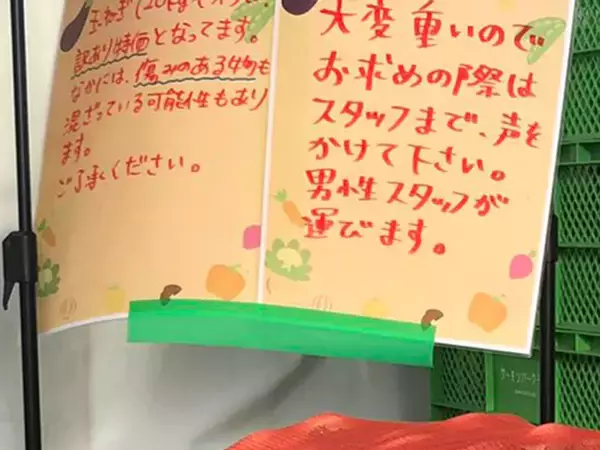 玉ねぎ(20kg
訳あり特価となってます。
なかには、傷みのある物も
混ざっている可能性もあり
ます。
ご了承ください。
大変重いので
お求めの際は
スタッフまで、声を
かけて下さい。
男性スタッフが
運びます。